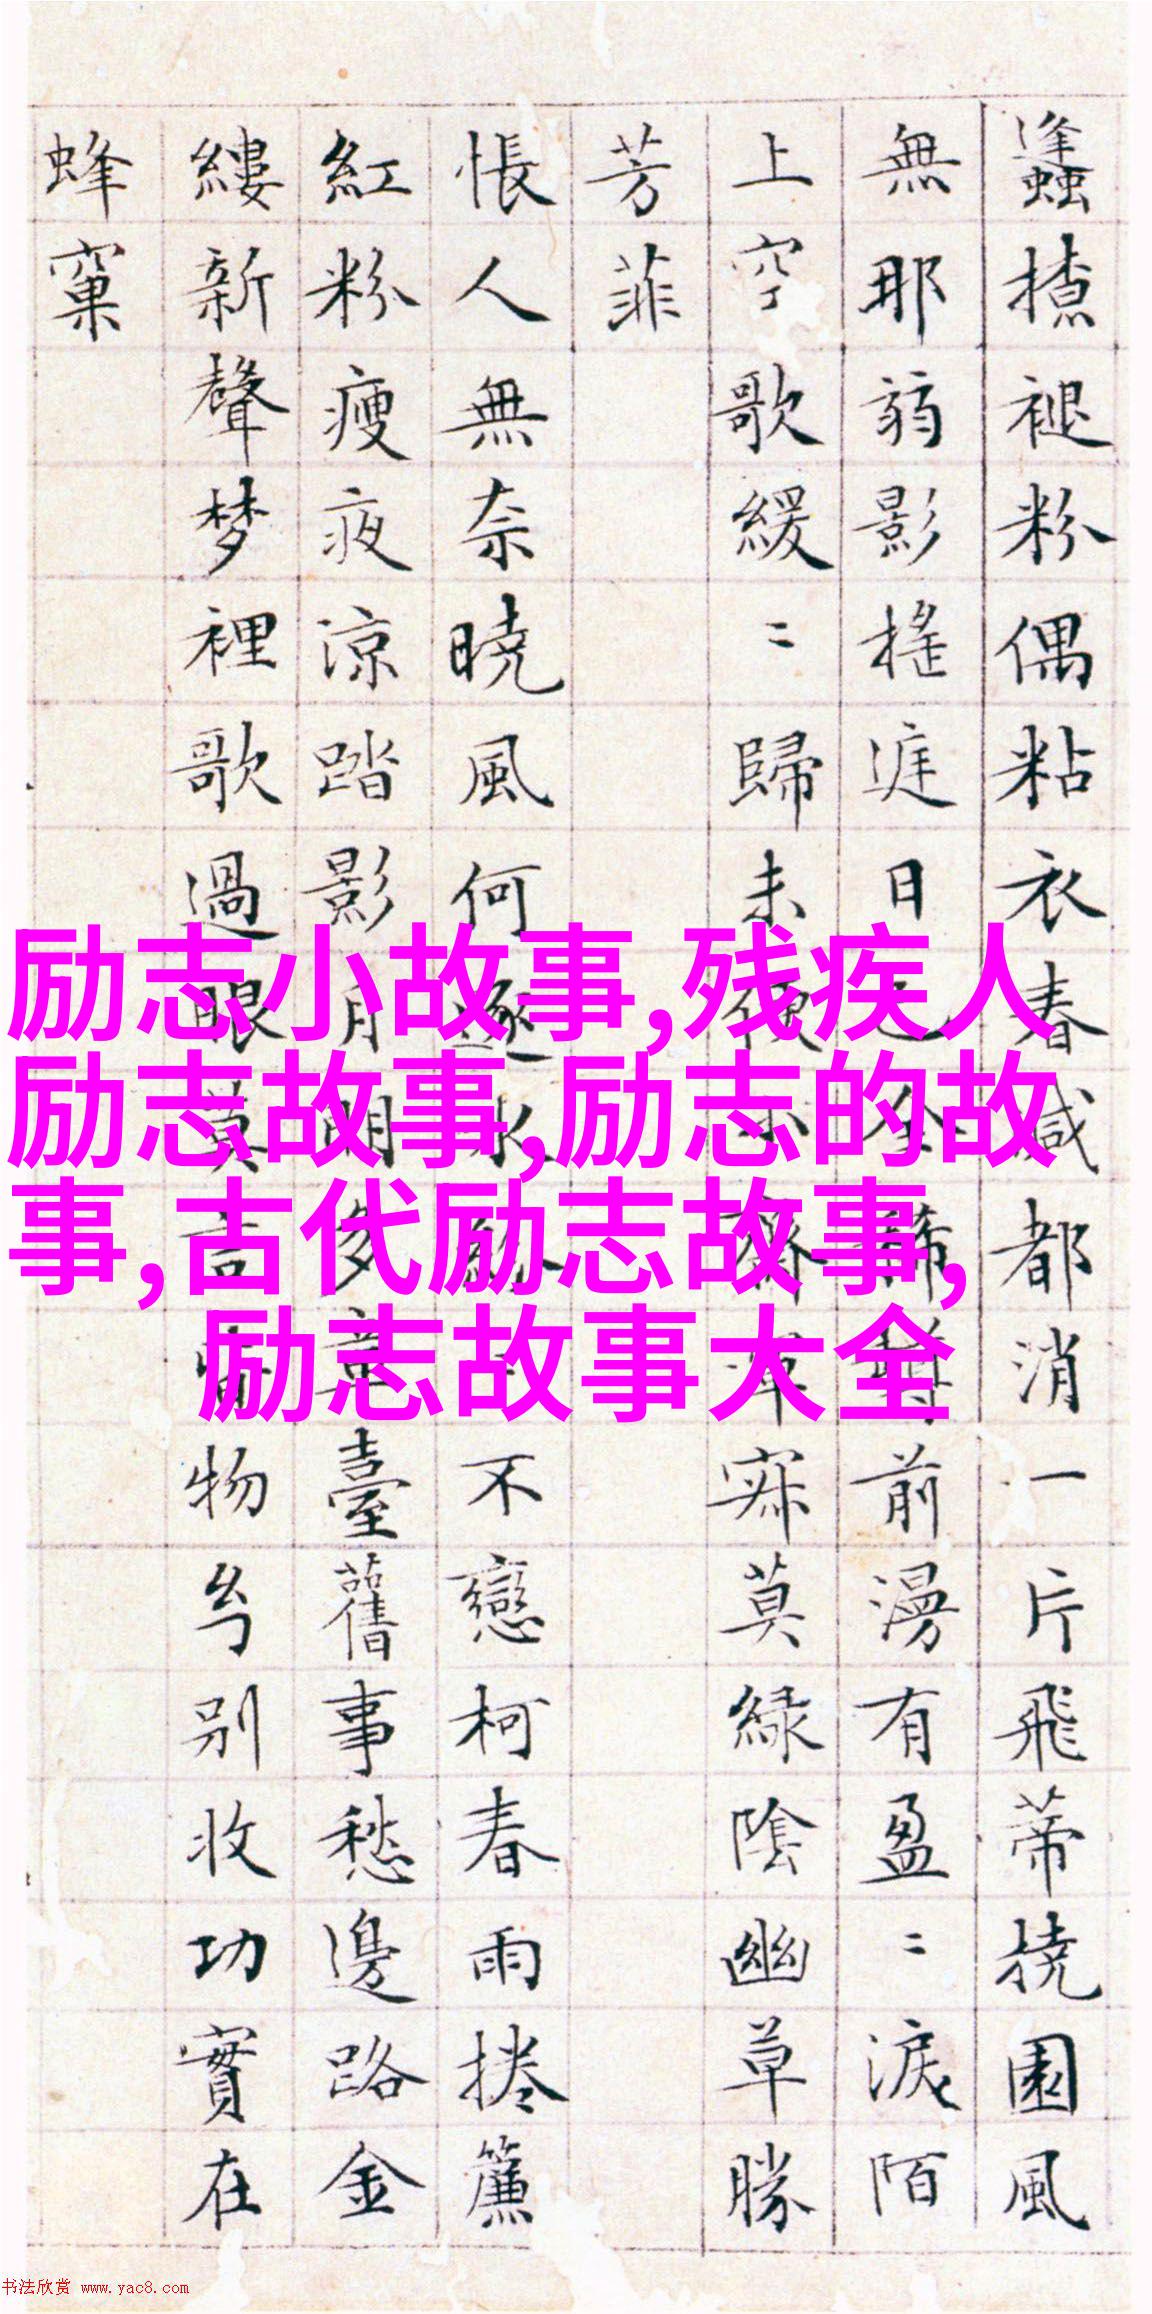 蠭褪粉偶粘衣春都消一片飛蒂撓園風
無那弱影搖庭日前漫有盈〻淚陌
上空歌緩〻歸未寂莫緑陰幽草勝
芳菲
悵人無奈曉風何逐水不戀柯春雨捲簾
紅粉瘦夜涼踏影月明多章臺舊事愁邊路金
縷新聲梦裡歌過眼莫言皆物幻别收功實在
蜂窠
励志小故事,残疾人
励志故事,励志的故
事,古代励志故事,
励志故事大全
书法欣赏 www.yac8.com